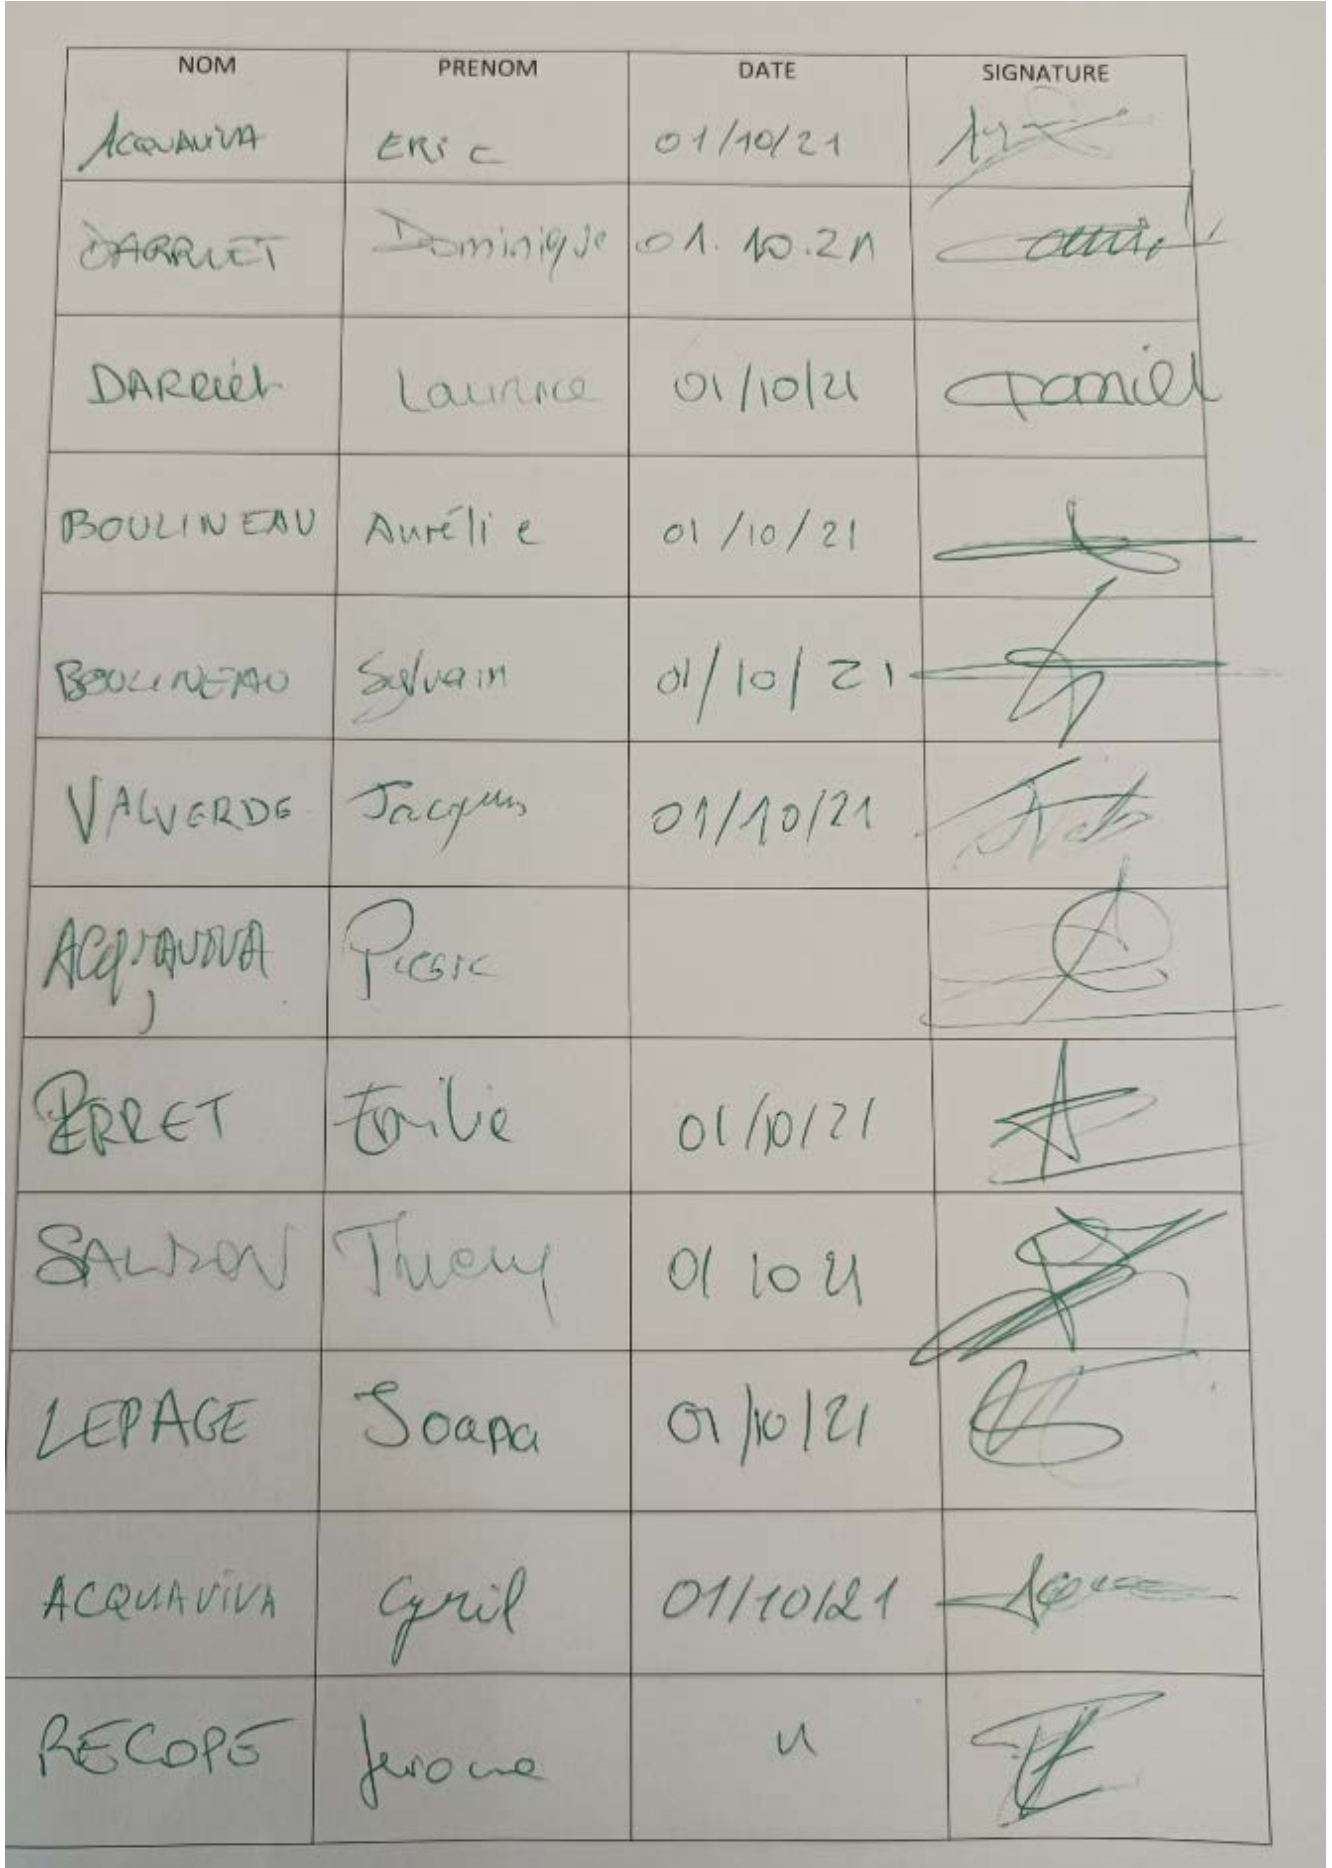 NOM PRENOM DATE SIGNATURE
ACQUAVIVA ERic 01/10/21
DARRIET Dominique 01.10.21
DARRiet Laurence 01/10/21 Darriet
BOULINEAU Aurélie 01/10/21
BOULINEAU Sylvain 01/10/21
VALVERDE Jacques 01/10/21
ACQUAVIVA
PERRET Emilie 01/10/21
Thierry 01 10 21
LEPAGE Joana 01/10/21
ACQUAVIVA Cyril 01/10/21
RECOPE Jerome "